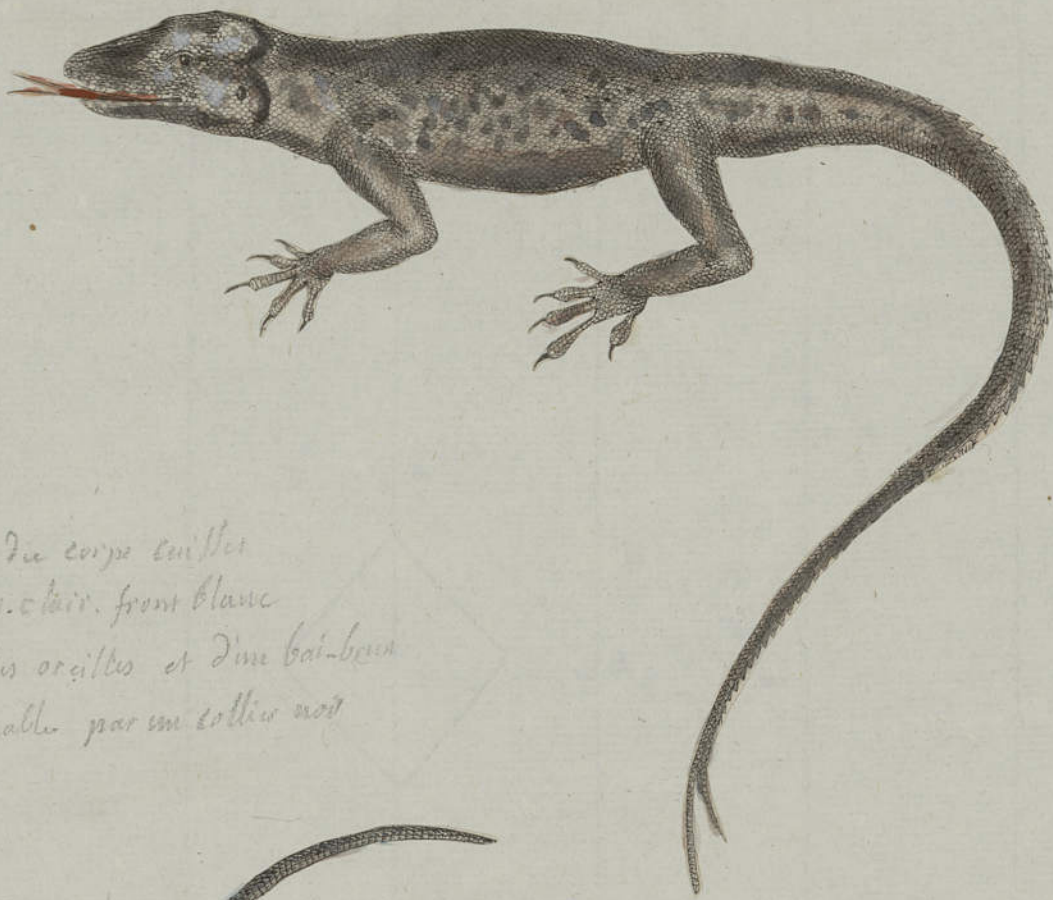 du corps cuisses
clair. front blanc
oreilles et d'un bai-brun
par un collier noir